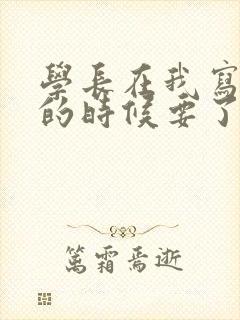 學長在我寫
的時候要了
篤霜焉逝